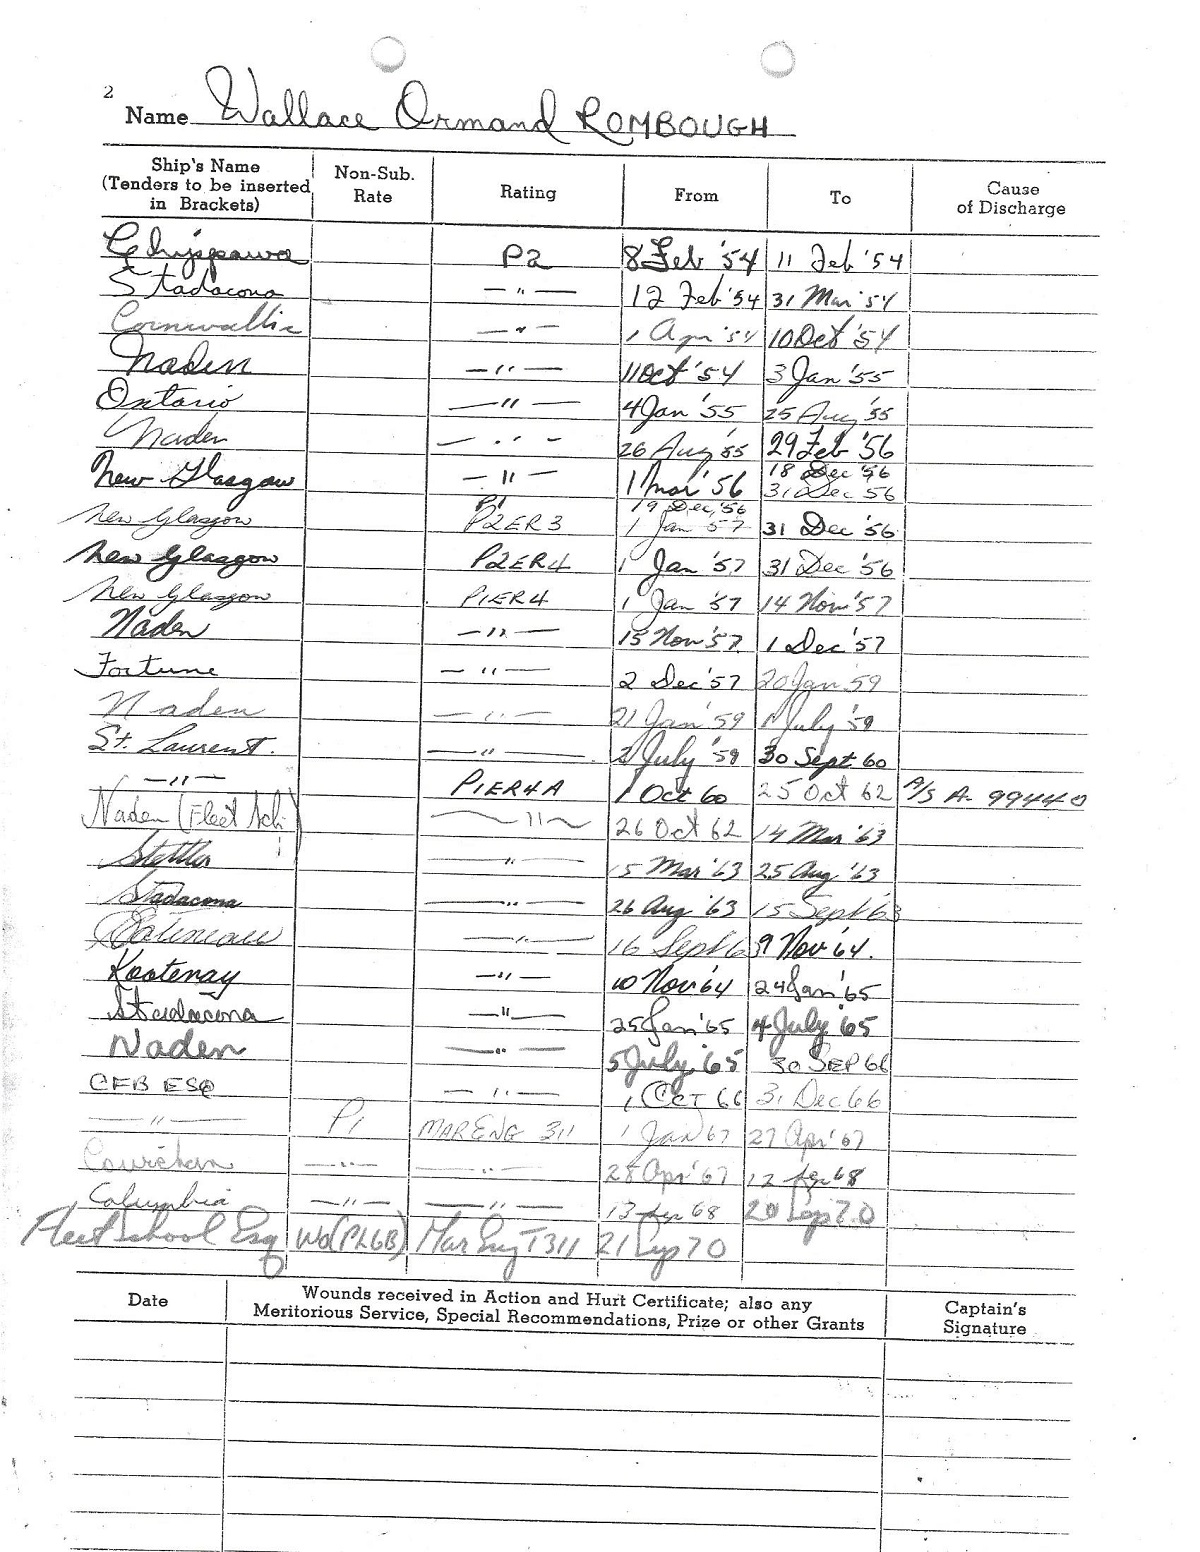 2
Name Wallace Ormand ROMBOUGH
Ship's Name (Tenders to be inserted in Brackets) Non-Sub. Rate Rating From To Cause of Discharge
Chippawa P2 8 Feb '54 11 Feb '54
Stadacona —"— 12 Feb '54 31 Mar '54
Cornwallis —"— 1 Apr '54 10 Oct '54
Naden —"— 11 Oct '54 3 Jan '55
Ontario —"— 4 Jan '55 25 Aug '55
Naden —"— 26 Aug '55 29 Feb '56
New Glasgow —"— 1 Mar '56 18 Dec '56 31 Dec 56
New Glasgow P1 P2ER3 19 Dec '56 1 Jan 57 31 Dec '56
New Glasgow P2ER4 1 Jan '57 31 Dec '56
New Glasgow P1ER4 1 Jan '57 14 Nov '57
Naden —"— 15 Nov '57 1 Dec '57
Fortune —"— 2 Dec '57 20 Jan '59
Naden —"— 21 Jan '59 1 July '59
St. Laurent. —"— 2 July '59 30 Sept 60
—"— P1ER4A 1 Oct 60 25 Oct 62 P/S A- 99440
Naden (Fleet Sch) —"— 26 Oct 62 14 Mar '63
Stettler —"— 15 Mar '63 25 Aug '63
Stadacona —"— 26 Aug '63 15 Sept 63
Gatineau —"— 16 Sept 63 9 Nov '64.
Kootenay —"— 10 Nov '64 24 Jan '65
Stadacona —"— 25 Jan '65 4 July '65
Naden —"— 5 July '65 30 SEP 66
CFB ESQ —"— 1 OCT 66 31 Dec 66
—"— P1 MARENG 311 1 Jan 67 27 Apr '67
Cowichan —"— —"— 28 Apr '67 12 Sep 68
Columbia —"— —"— 13 Sep 68 20 Sep 70
Fleet School Esq WO(P2GB) Mar Eng T311 21 Sep 70
Date Wounds received in Action and Hurt Certificate; also any Meritorious Service, Special Recommendations, Prize or other Grants Captain's Signature